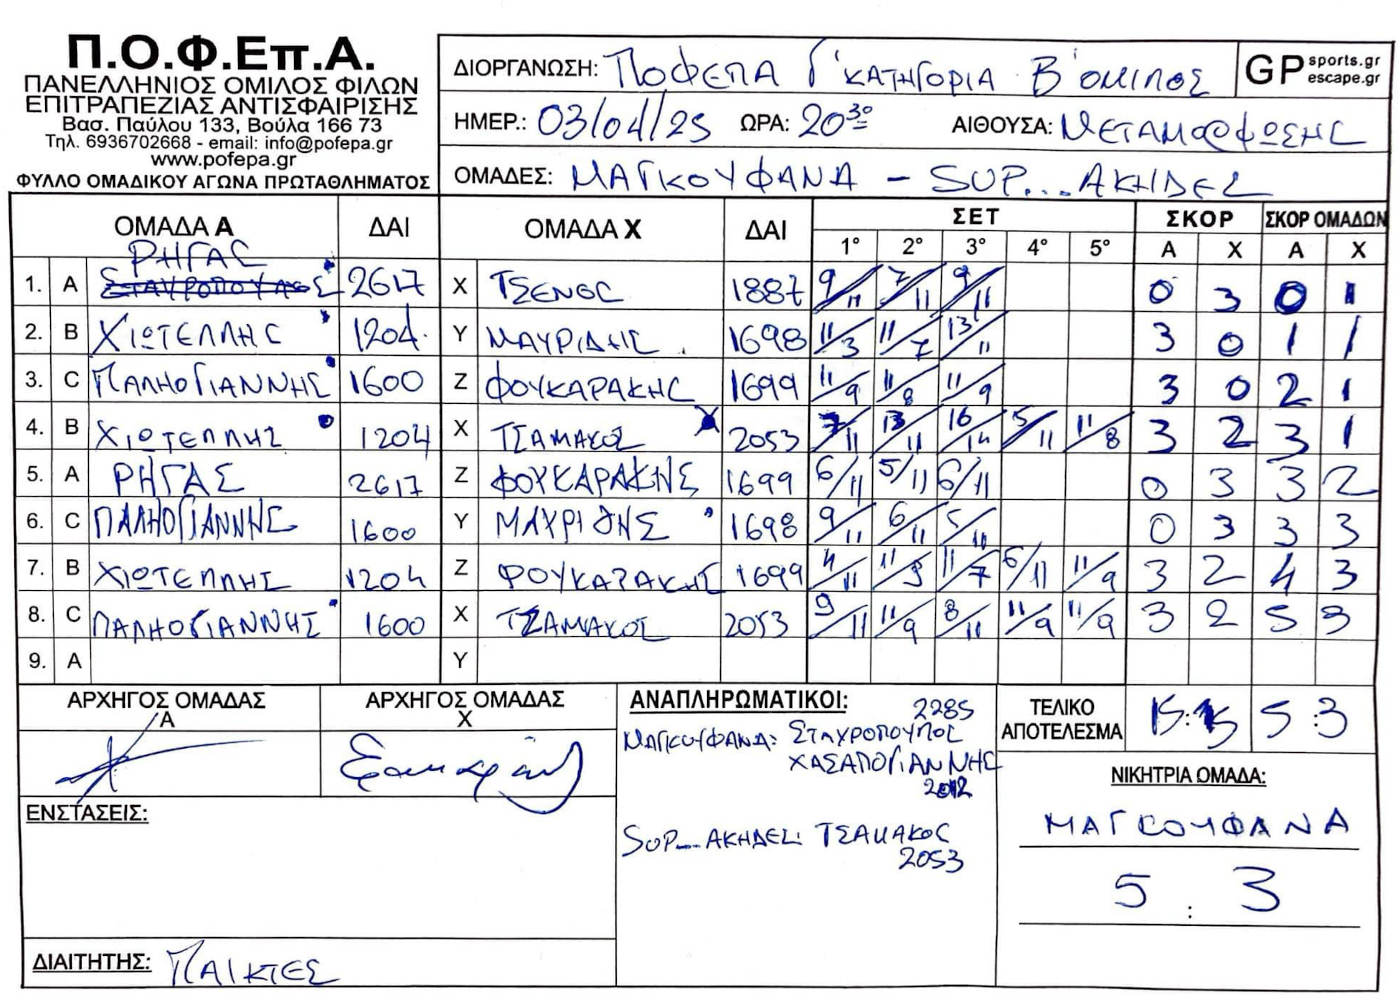 Π.Ο.Φ.Επ.Α.
ΠΑΝΕΛΛΗΝΙΟΣ ΟΜΙΛΟΣ ΦΙΛΩΝ
ΕΠΙΤΡΑΠΕΖΙΑΣ ΑΝΤΙΣΦΑΙΡΙΣΗΣ
Βασ. Παύλου 133, Βούλα 166 73
Τηλ. 6936702668 - email: info@pofepa.gr
www.pofepa.gr
ΦΥΛΛΟ ΟΜΑΔΙΚΟΥ ΑΓΩΝΑ ΠΡΩΤΑΘΛΗΜΑΤΟΣ
ΔΙΟΡΓΑΝΩΣΗ: ΠΟΦΕΠΑ Γ' ΚΑΤΗΓΟΡΙΑ Β' ΟΜΙΛΟΣ
GP sports.gr escape.gr
ΗΜΕΡ.: 03/04/25 ΩΡΑ: 20³⁰ ΑΙΘΟΥΣΑ: ΜΕΤΑΜΟΡΦΩΣΗΣ
ΟΜΑΔΕΣ: ΜΑΓΚΟΥΦΑΝΑ - SUP...ΑΚΗΔΕΣ
ΟΜΑΔΑ Α ΔΑΙ ΟΜΑΔΑ Χ ΔΑΙ ΣΕΤ ΣΚΟΡ ΣΚΟΡ ΟΜΑΔΩΝ
1° 2° 3° 4° 5° Α Χ Α Χ
ΡΗΓΑΣ
1. Α ΣΤΑΥΡΟΠΟΥΛΟΣ 2617 Χ ΤΣΕΝΟΣ 1887 9/11 7/11 9/11 0 3 0 1
2. Β ΧΙΩΤΕΛΛΗΣ 1204 Υ ΜΑΥΡΙΔΗΣ 1698 11/3 11/7 13/11 3 0 1 1
3. C ΠΑΛΗΟΓΙΑΝΝΗΣ 1600 Ζ ΦΟΥΚΑΡΑΚΗΣ 1699 11/9 11/8 11/9 3 0 2 1
4. Β ΧΙΩΤΕΛΛΗΣ 1204 Χ ΤΣΑΜΑΚΟΣ 2053 7/11 13/11 16/14 5/11 11/8 3 2 3 1
5. Α ΡΗΓΑΣ 2617 Ζ ΦΟΥΚΑΡΑΚΗΣ 1699 6/11 5/11 6/11 0 3 3 2
6. C ΠΑΛΗΟΓΙΑΝΝΗΣ 1600 Υ ΜΑΥΡΙΔΗΣ 1698 9/11 6/11 0 3 3 3
7. Β ΧΙΩΤΕΛΛΗΣ 1204 Ζ ΦΟΥΚΑΡΑΚΗΣ 1699 4/11 11/9 11/7 6/11 11/9 3 2 4 3
8. C ΠΑΛΗΟΓΙΑΝΝΗΣ 1600 Χ ΤΣΑΜΑΚΟΣ 2053 9/11 11/9 8/11 11/9 11/9 3 2 5 3
9. Α Υ
ΑΡΧΗΓΟΣ ΟΜΑΔΑΣ Α
ΑΡΧΗΓΟΣ ΟΜΑΔΑΣ Χ
ΕΝΣΤΑΣΕΙΣ:
ΔΙΑΙΤΗΤΗΣ: ΠΑΙΚΤΕΣ
ΑΝΑΠΛΗΡΩΜΑΤΙΚΟΙ:
2285
ΜΑΓΚΟΥΦΑΝΑ: ΣΤΑΥΡΟΠΟΥΛΟΣ
ΧΑΣΑΠΟΓΙΑΝΝΗΣ
2012
SUP...ΑΚΗΔΕΣ: ΤΣΑΜΑΚΟΣ
2053
ΤΕΛΙΚΟ ΑΠΟΤΕΛΕΣΜΑ 15:15 5:3
ΝΙΚΗΤΡΙΑ ΟΜΑΔΑ:
ΜΑΓΚΟΥΦΑΝΑ
5 : 3